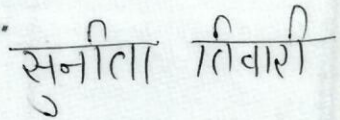 सुनीता तिवारी